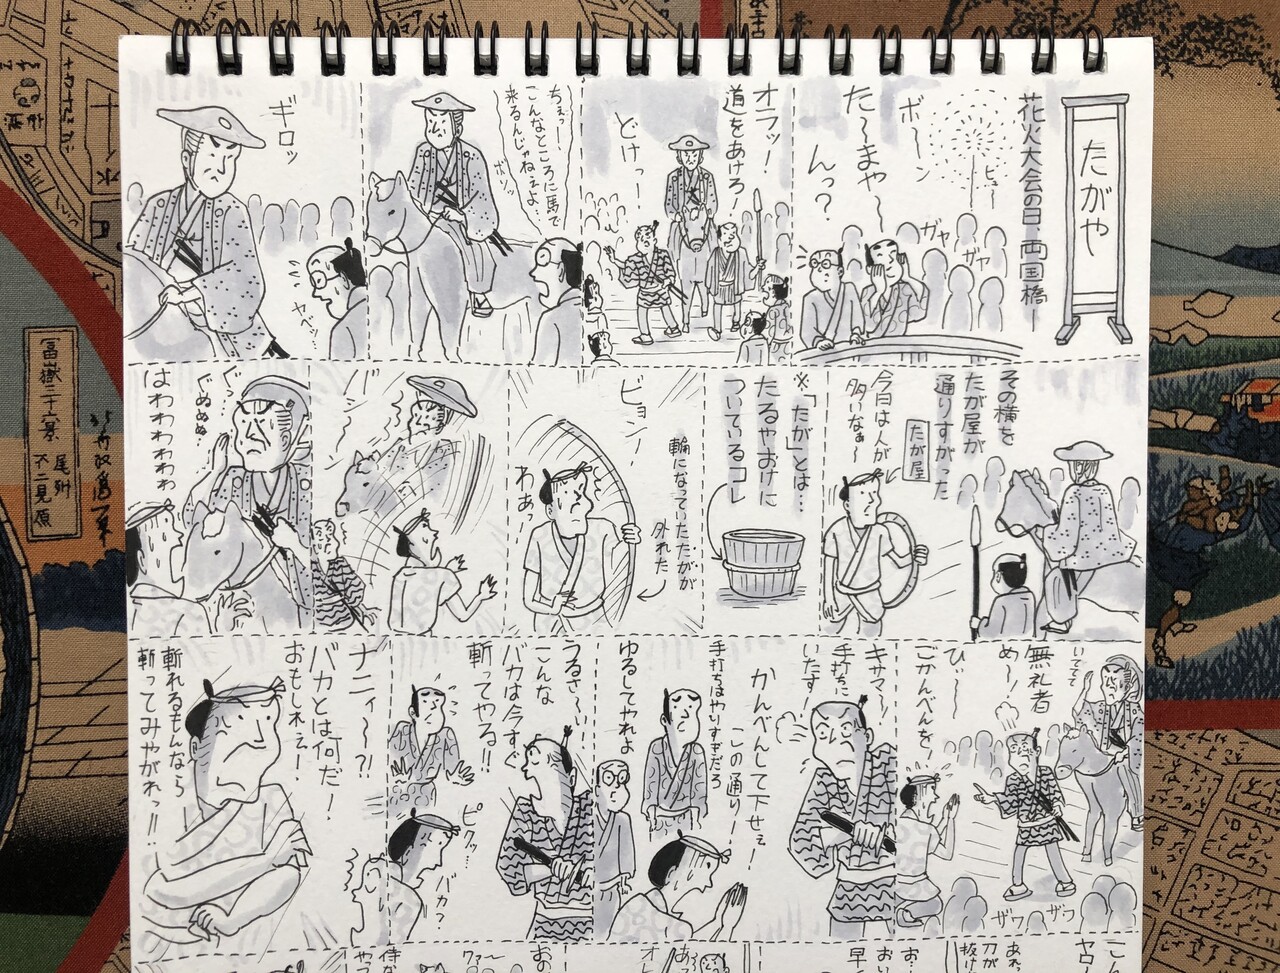 たがや
花火大会の日、両国橋ー
ヒュー
ボ〜ン
た〜まや〜
ガヤ
ガヤ
んっ？
オラッ！
道をあけろ！
どけっー
ちぇっー
こんなところに馬で
来るんじゃねぇよ…
ボソッ
ギロッ
ヤベッ…
その横を
たが屋が
通りすがった
たが屋
今日は人が
多いなぁ〜
※「たが」とは…
たるやおけに
ついているコレ
輪になっていたたがが
外れた
ビョン！
わあっ
バシッ
ぐっ…
ぐぬぬぬ…
はわわわわわ
いててて
無礼者
め〜！
ひぃ〜
ごかんべんを！
ザワ
ザワ
キサマ〜！
手打ちに
いたす
かんべんして下せぇ！
この通り！
手打ちはやりすぎだろ
ゆるしてやれよ
うるさ〜い
こんな
バカは今すぐ
斬ってやる!!
ピクッ…
バカ？
ナニィ〜?!
バカとは何だ！
おもしれぇー
斬れるもんなら
斬ってみやがれっ!!
冨嶽三十六景
尾州
不二見原